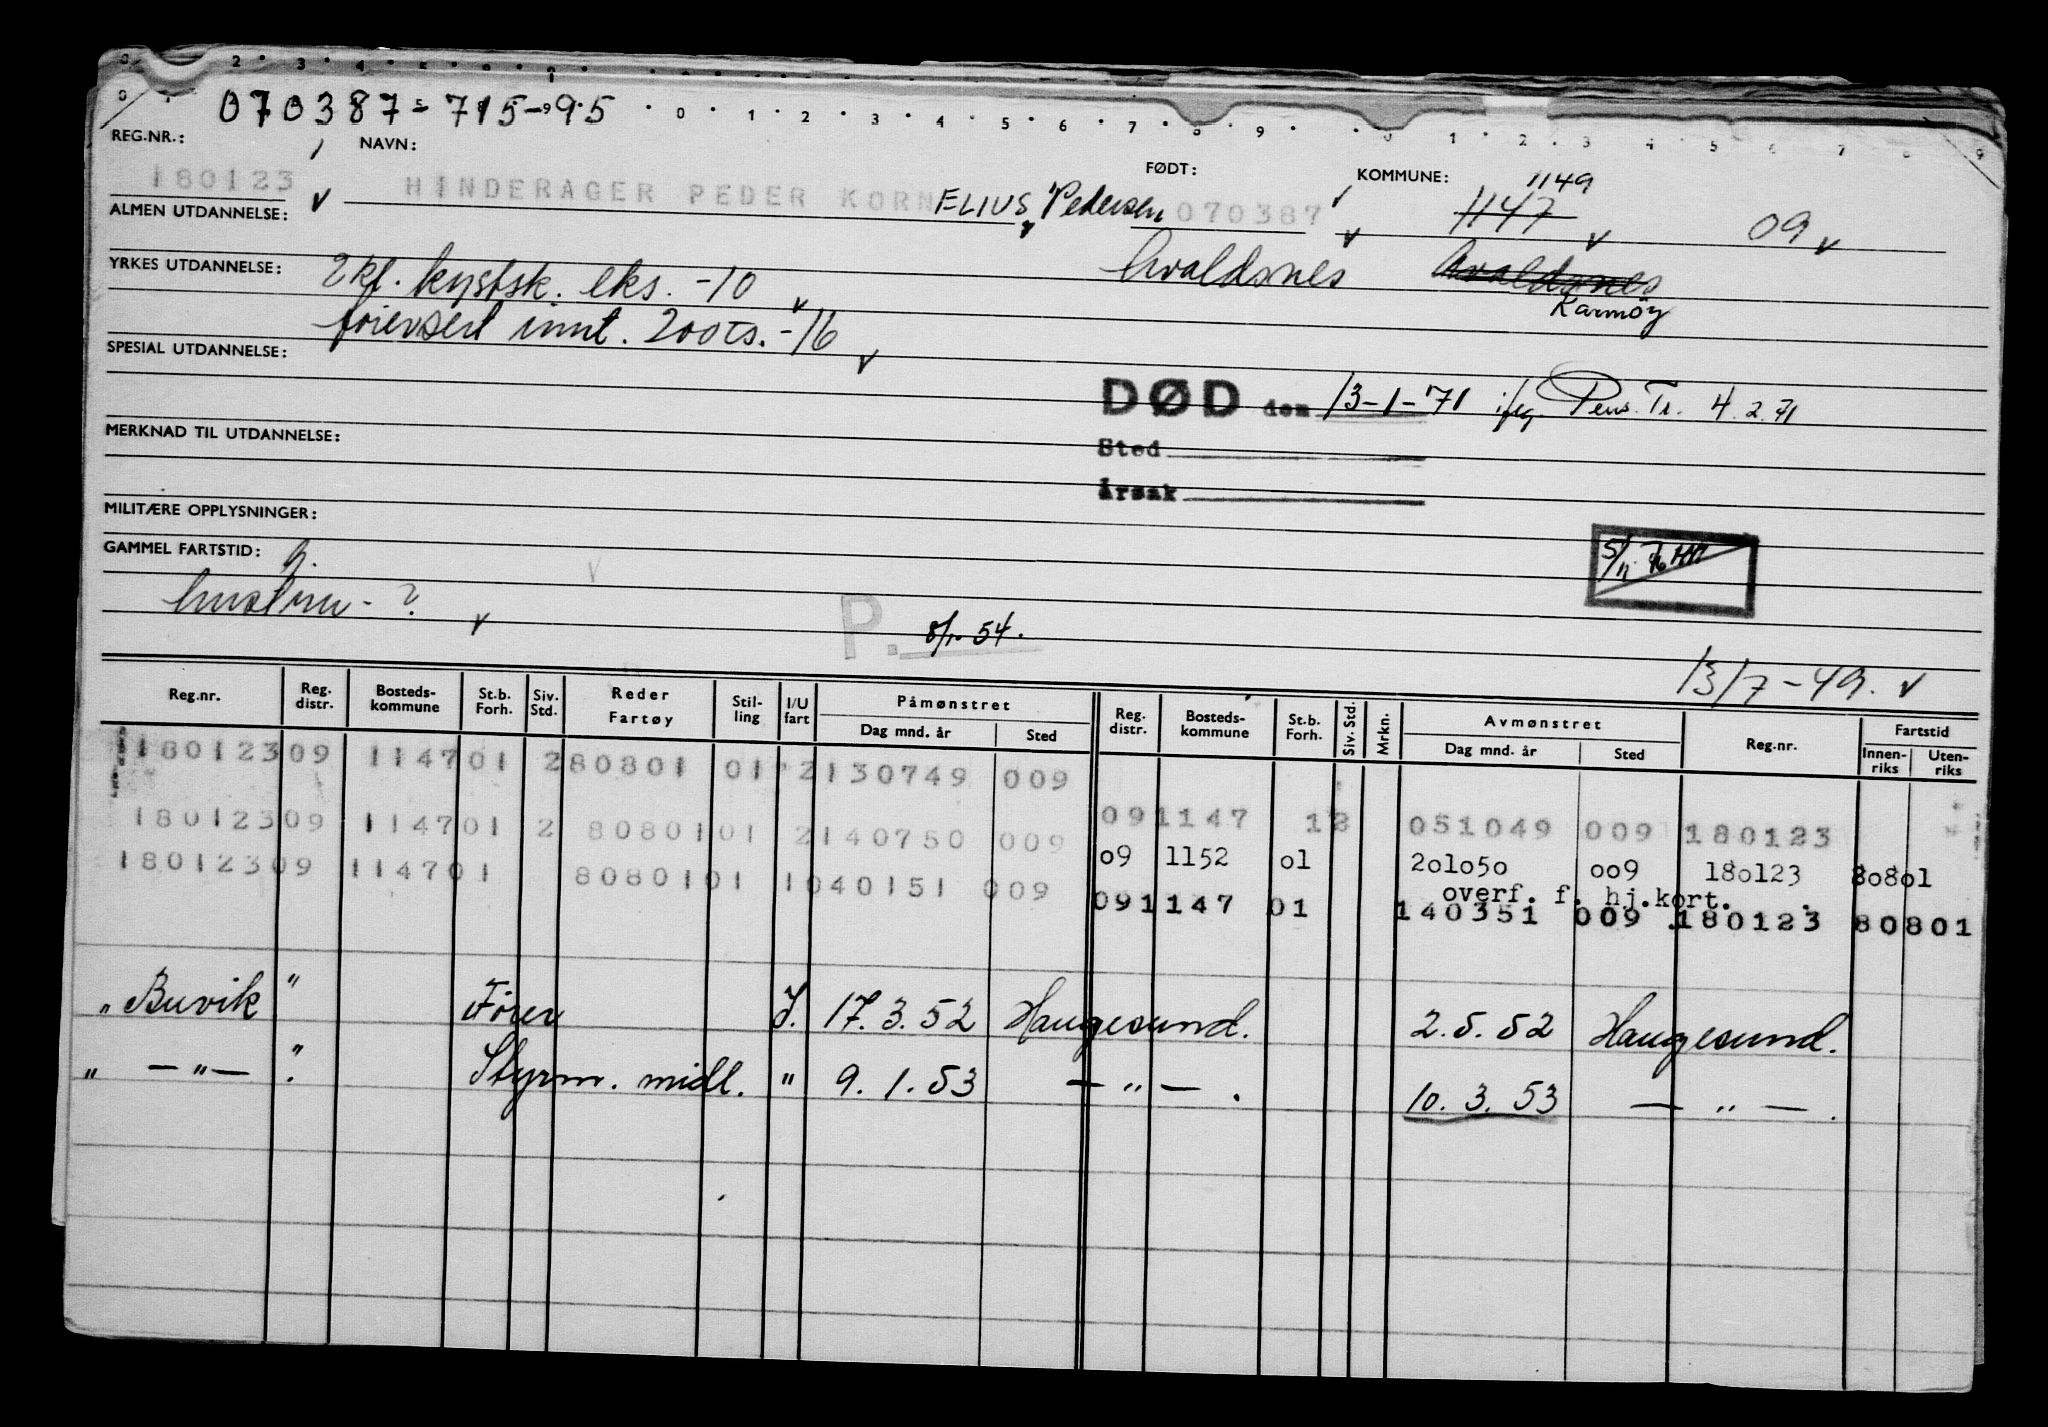 070387-715-95
REG.NR.: NAVN: FØDT: KOMMUNE: 1149
180123 HINDERAGER PEDER KORNELIUS Pedersen 070387 1147 09
ALMEN UTDANNELSE: Avaldsnes Avaldsnes
Karmöy
YRKES UTDANNELSE: 2 kl. kystsk. eks. -10
förersert innt. 200 ts. -16
SPESIAL UTDANNELSE:
DØD den 13-1-71 iflg. Pens. Tr. 4.2.71
MERKNAD TIL UTDANNELSE: Sted
årsak
MILITÆRE OPPLYSNINGER:
GAMMEL FARTSTID:
P. 8/1-54.
13/7-49.
Reg.nr. Reg. distr. Bosteds- kommune St.b. Forh. Siv. Std. Reder Fartøy Stil- ling I/U fart Påmønstret Dag mnd. år Sted Reg. distr. Bosteds- kommune St.b. Forh. Siv. Std. Mrkn. Avmønstret Dag mnd. år Sted Reg.nr. Fartstid Innen- riks Uten- riks
180123 09 1147 01 2 80801 01 2 130749 009
180123 09 1147 01 2 80801 01 2 140750 009 09 1147 1 051049 009 180123
180123 09 1147 01 80801 01 1 040151 009 09 1152 01 201050 009 180123 80801
overf. f. hj.kort.
09 1147 01 140351 009 180123 80801
" Buvik " Fører I. 17.3.52 Haugesund. 2.5.52 Haugesund.
" — " — " . Styrm. midl. " 9.1.53 — " — . 10.3.53 — " — .